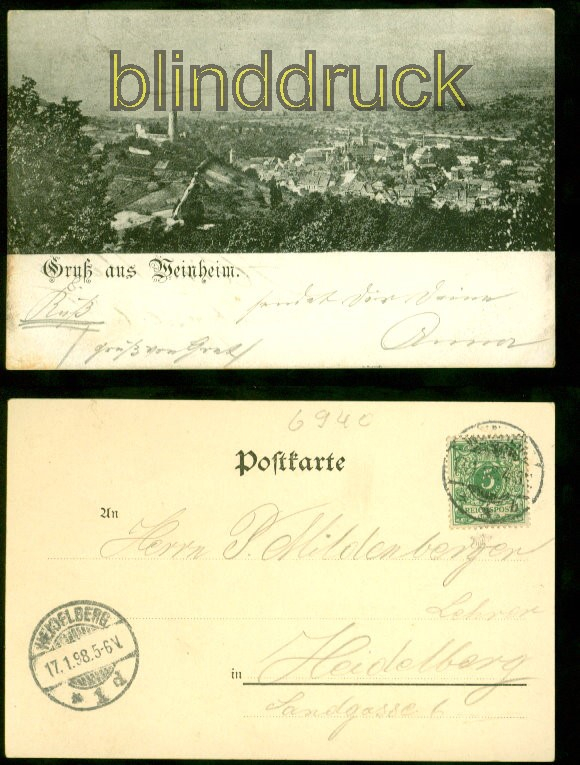 blinddruck
Gruß aus Weinheim.
Kuß sendet Dir Deine
Anna
gruß von Gret
6940
Postkarte
REICHSPOST
An
Herrn P. Mildenberger
Lehrer
HEIDELBERG.
17.1.98.5-6V.
* 1 d
in Heidelberg
Sandgasse 6